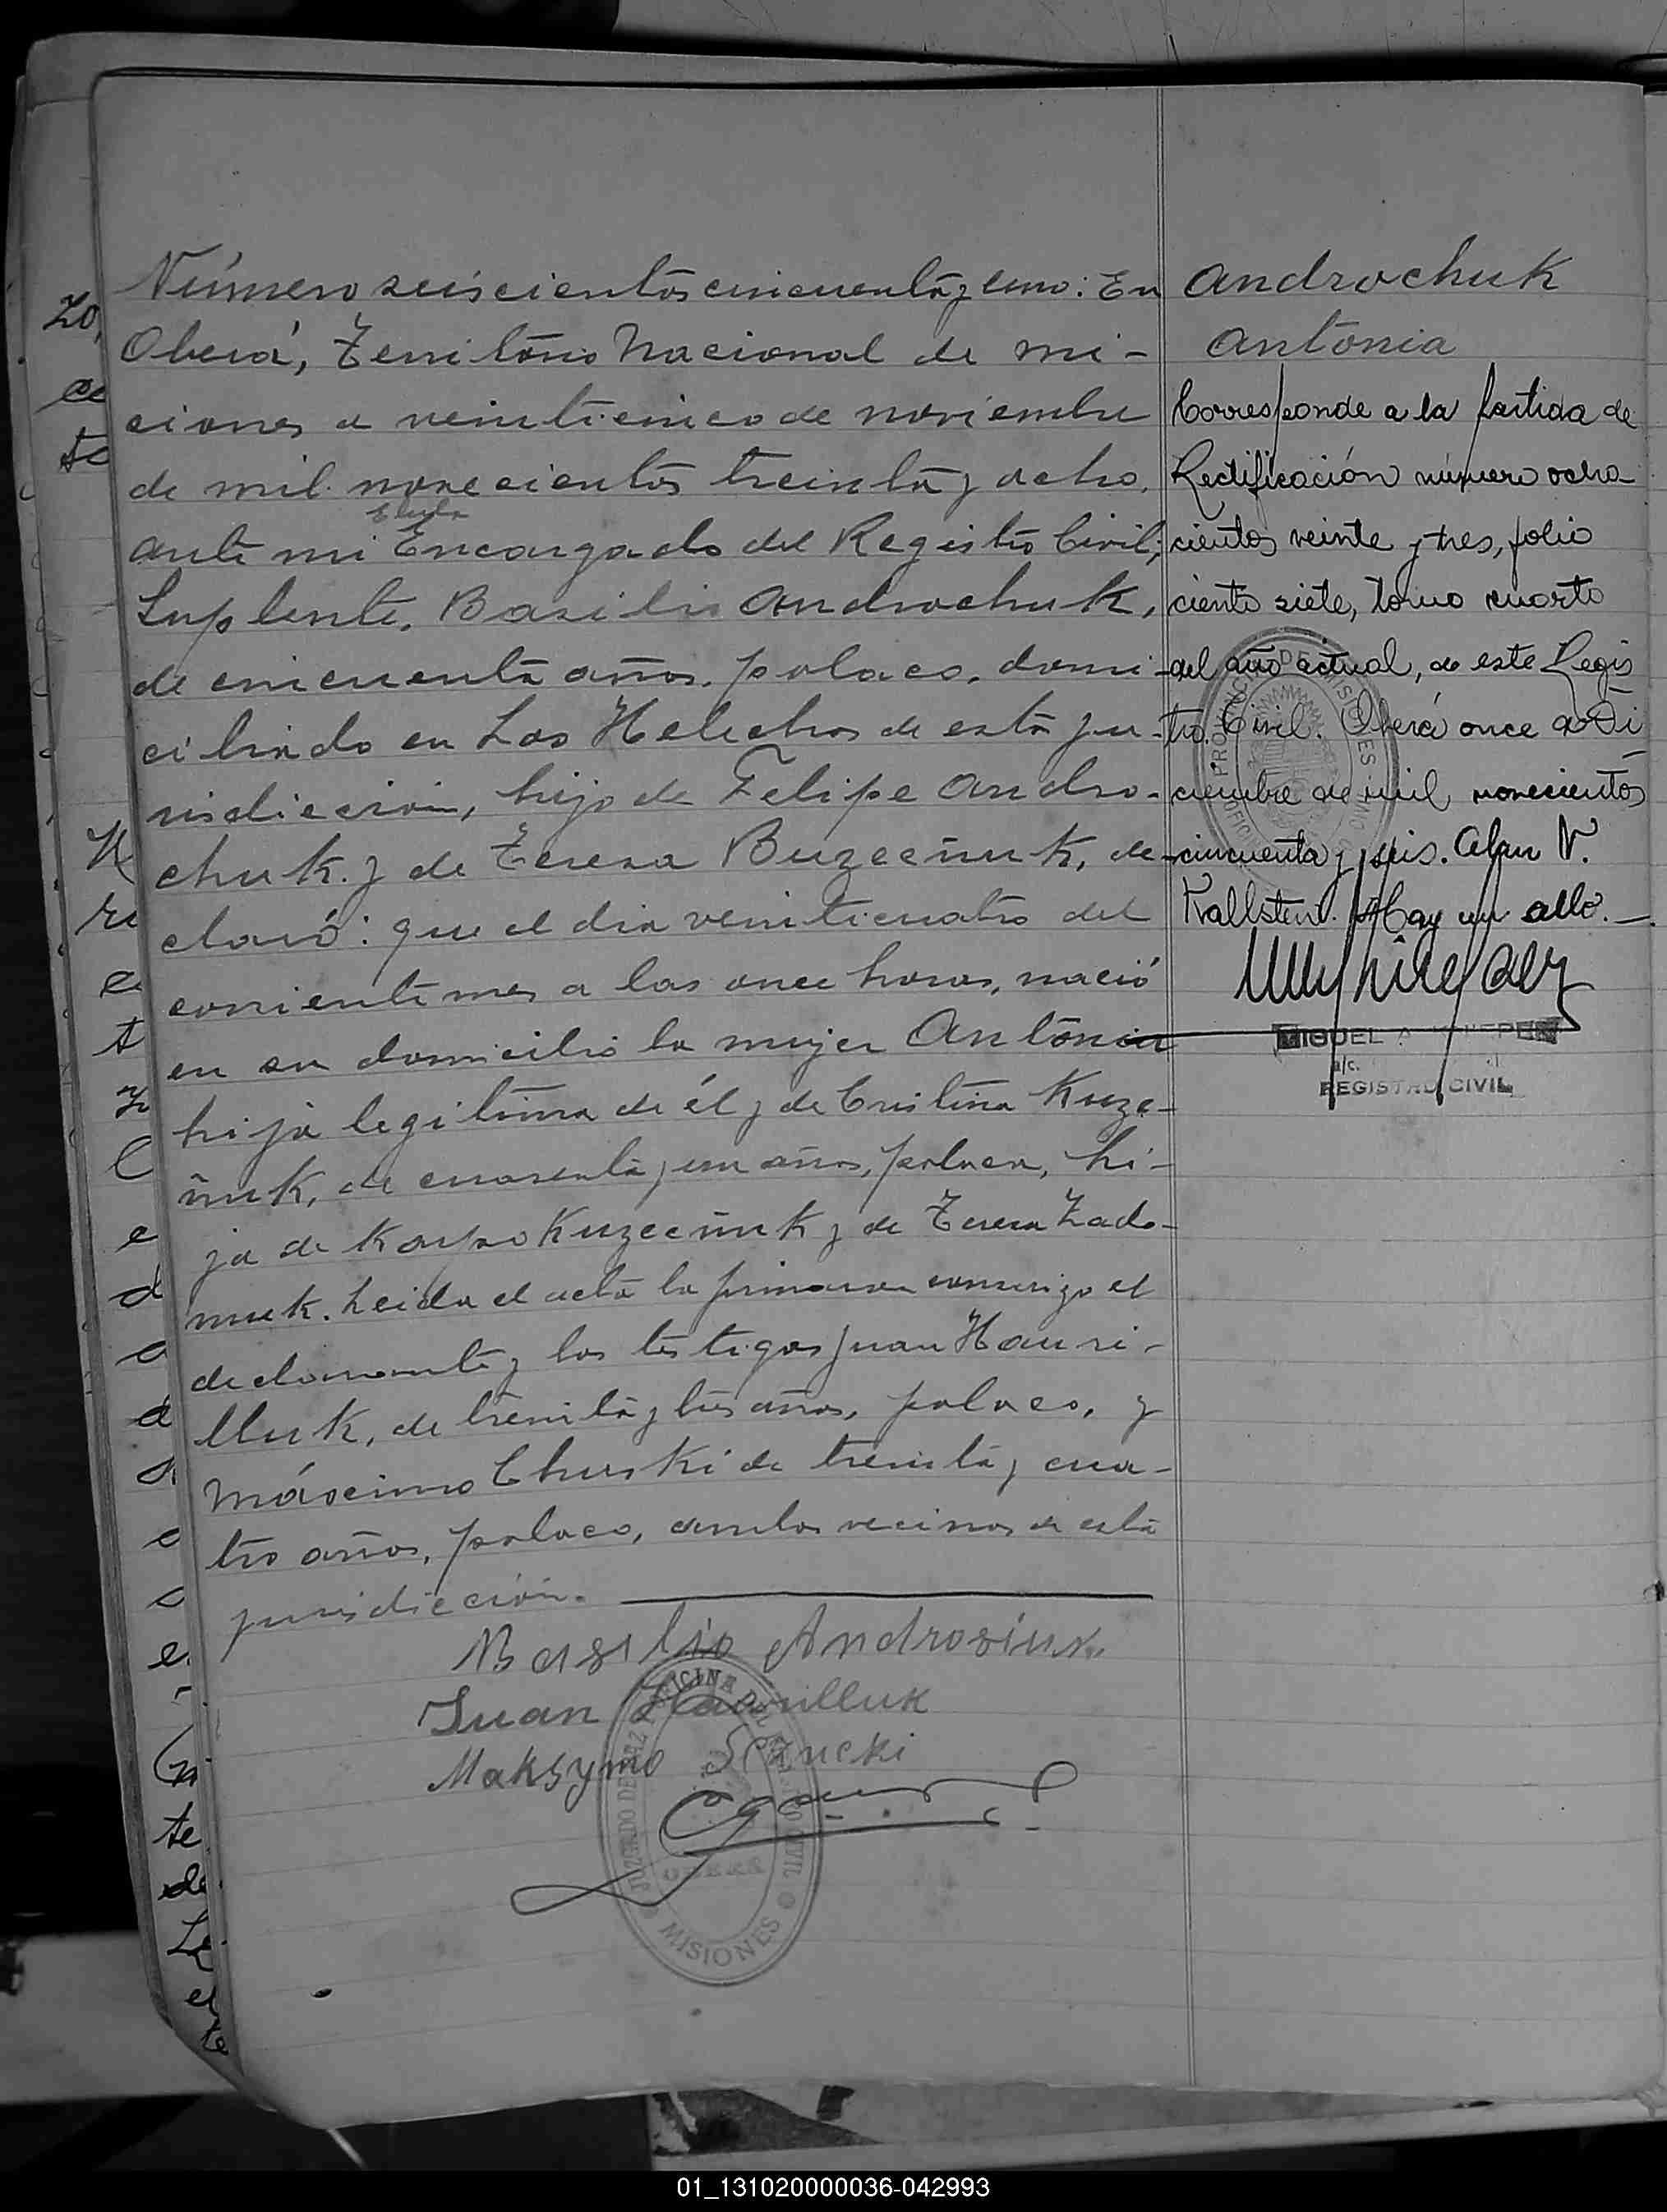 Número seiscientos cincuenta y uno: En
Oberá, Territorio Nacional de Mi-
ciones a veinticinco de noviembre
de mil novecientos treinta y ocho,
ante mi Encargado del Registro Civil,
Suplente, Basilio Androchuk,
de cincuenta años, polaco, domi-
ciliado en Los Helechos de esta ju-
risdiccion, hijo de Felipe Andro-
chuk y de Teresa Buzecñuk, de-
claró: que el dia veinticuatro del
corriente mes a las once horas, nació
en su domicilio la mujer Antonia
hija legitima de él y de Cristina Kuze-
ñuk, de cuarenta y un años, polaca, hi-
ja de Karpo Kuzecñuk y de Teresa Zado-
muk. Leida el acta la firmaron conmigo el
declarante y los testigos Juan Hauri-
lluk, de treinta y tres años, polaco, y
Máximo Churki de treinta y cua-
tro años, polaco, ambos vecinos de esta
jurisdicción.
Basilio Androsiuk
Juan Hawrilluk
Maksymo
OFICINA DEL REGISTRO CIVIL
JUZGADO DE PAZ
OBERÁ
MISIONES
Androchuk
Antonia
Corresponde a la partida de
Rectificación número ocho-
cientos veinte y tres, folio
ciento siete, tomo cuarto
del año actual, de este Regis
tro Civil. Oberá once de Di
ciembre de mil novecientos
cincuenta y seis. Alan V.
Kallsten. Hay un sello.
PROVINCIA DE MISIONES
MIGUEL A.
a/c.
REGISTRO CIVIL
zo,
ce
to
01_131020000036-042993